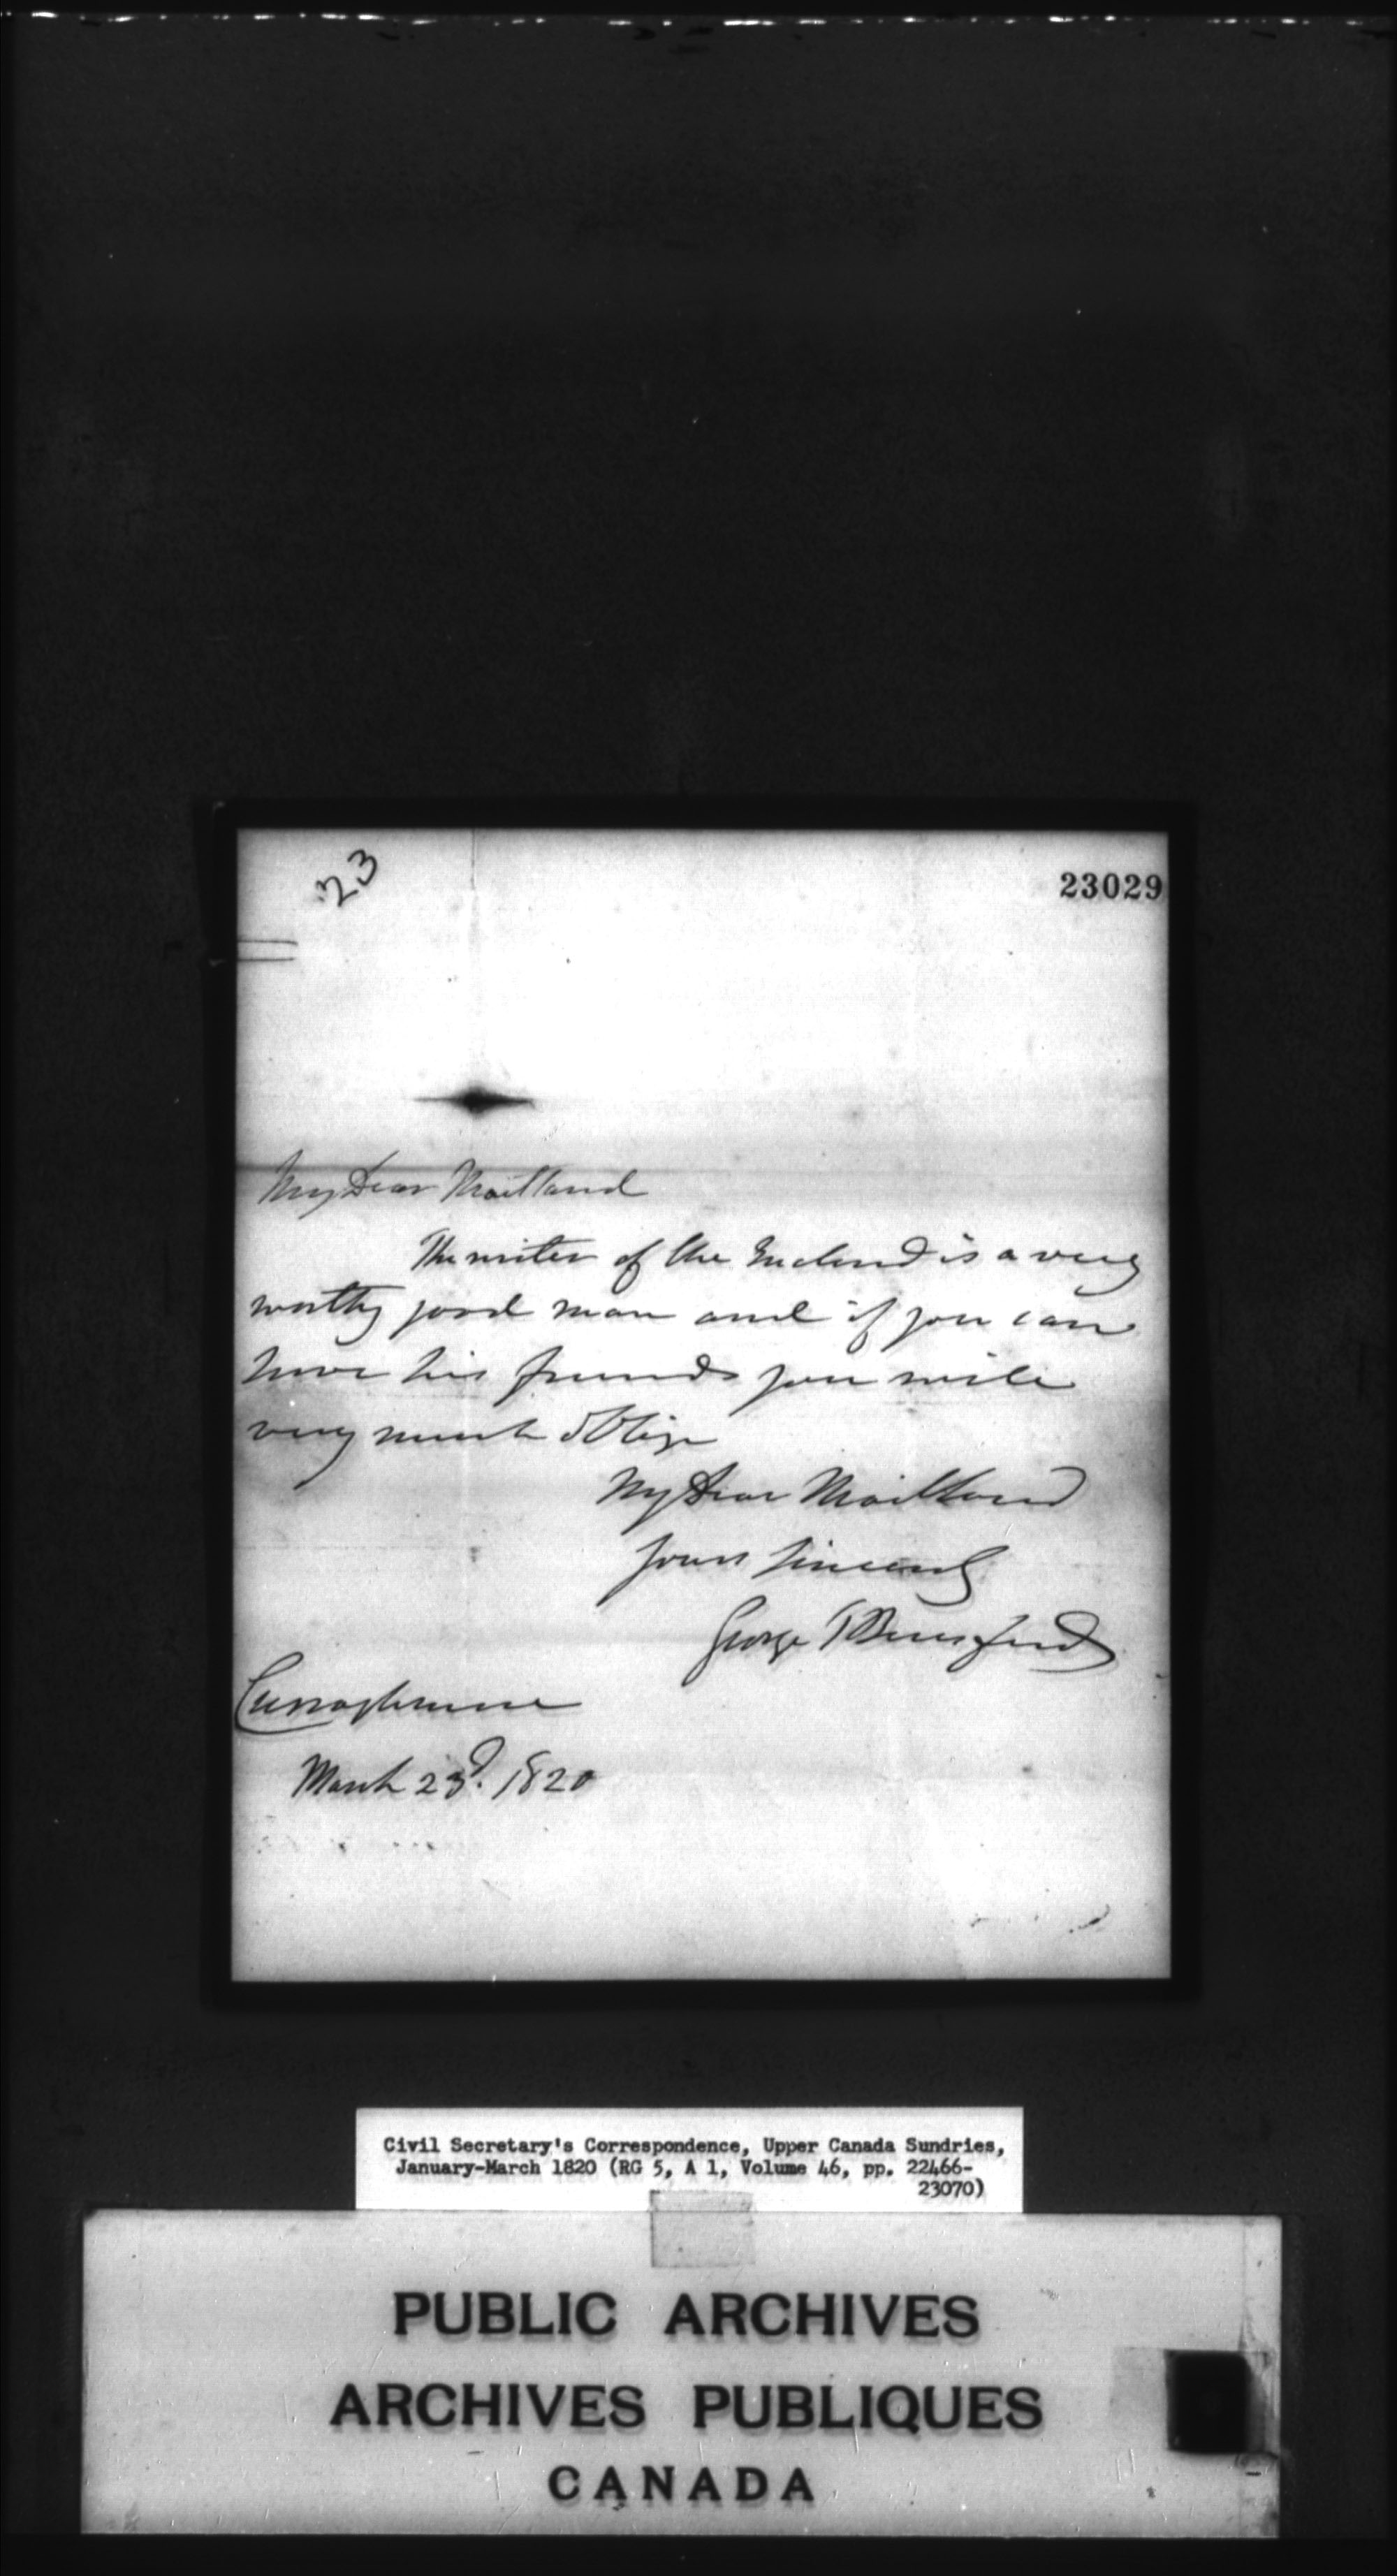 23
23029
My Dear Maitland
The writer of the Enclosed is a very
worthy good man and if you can
serve his friends you will
very much oblige
My Dear Maitland
Yours Sincerely
George T Beresford
Curraghmore
March 23d. 1820
Civil Secretary's Correspondence, Upper Canada Sundries,
January-March 1820 (RG 5, A 1, Volume 46, pp. 22466-
23070)
PUBLIC ARCHIVES
ARCHIVES PUBLIQUES
CANADA